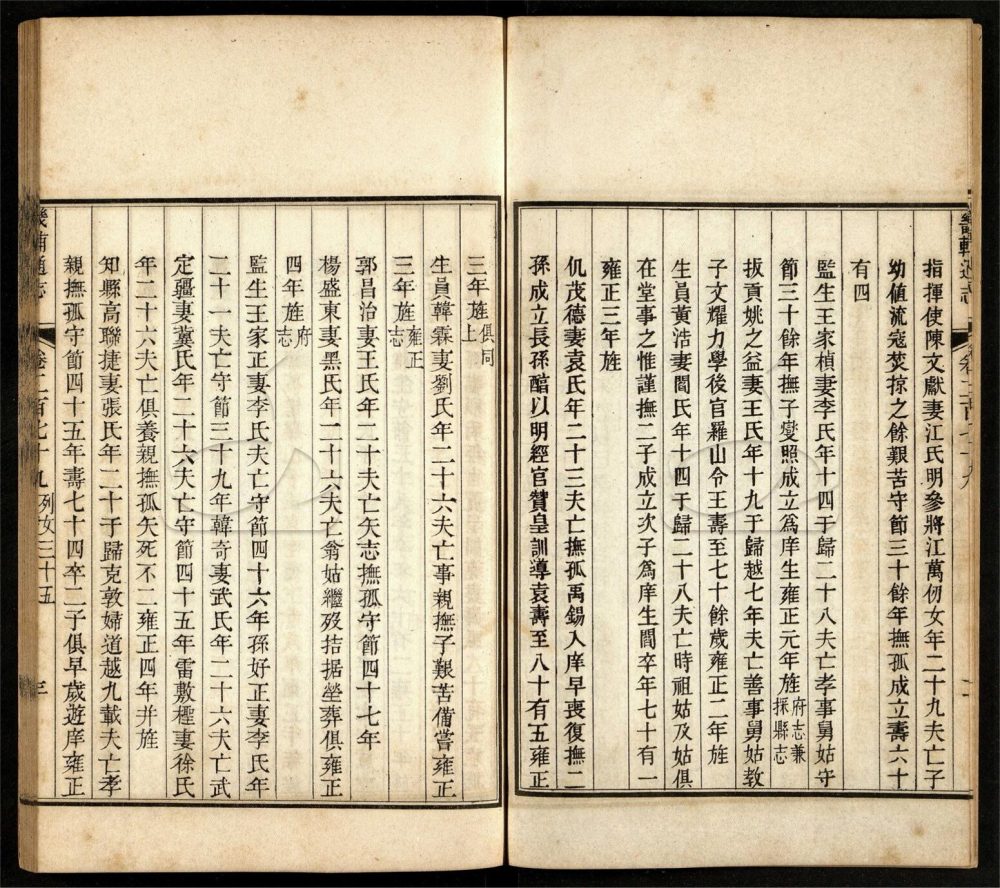 畿輔通志 卷二百七十九
指揮使陳文獻妻江氏明參將江萬仞女年二十九夫亡子
幼値流寇焚掠之餘艱苦守節三十餘年撫孤成立壽六十
有四
監生王家楨妻李氏年十四于歸二十八夫亡孝事舅姑守
節三十餘年撫子燮照成立爲庠生雍正元年旌府志兼採縣志
拔貢姚之益妻王氏年十九于歸越七年夫亡善事舅姑教
子文耀力學後官羅山令王壽至七十餘歲雍正二年旌
生員黃浩妻閻氏年十四于歸二十八夫亡時祖姑及姑俱
在堂事之惟謹撫二子成立次子爲庠生閻卒年七十有一
雍正三年旌
仉茂德妻袁氏年二十三夫亡撫孤禹錫入庠早喪復撫二
孫成立長孫醕以明經官贊皇訓導袁壽至八十有五雍正
三年旌俱同上
生員韓霖妻劉氏年二十六夫亡事親撫子艱苦備嘗雍正
三年旌雍正志
郭昌治妻王氏年二十夫亡矢志撫孤守節四十七年
楊盛東妻黑氏年二十六夫亡翁姑繼歿拮据塋葬俱雍正
四年旌府志
監生王家正妻李氏夫亡守節四十六年孫好正妻李氏年
二十一夫亡守節三十九年韓奇妻武氏年二十六夫亡武
定疆妻冀氏年二十六夫亡守節四十五年雷敷極妻徐氏
年二十六夫亡俱養親撫孤矢死不二雍正四年并旌
知縣高聯捷妻張氏年二十于歸克敦婦道越九載夫亡孝
親撫孤守節四十五年壽七十四卒二子俱早歲遊庠雍正
畿輔通志 卷二百七十九 列女三十五 三